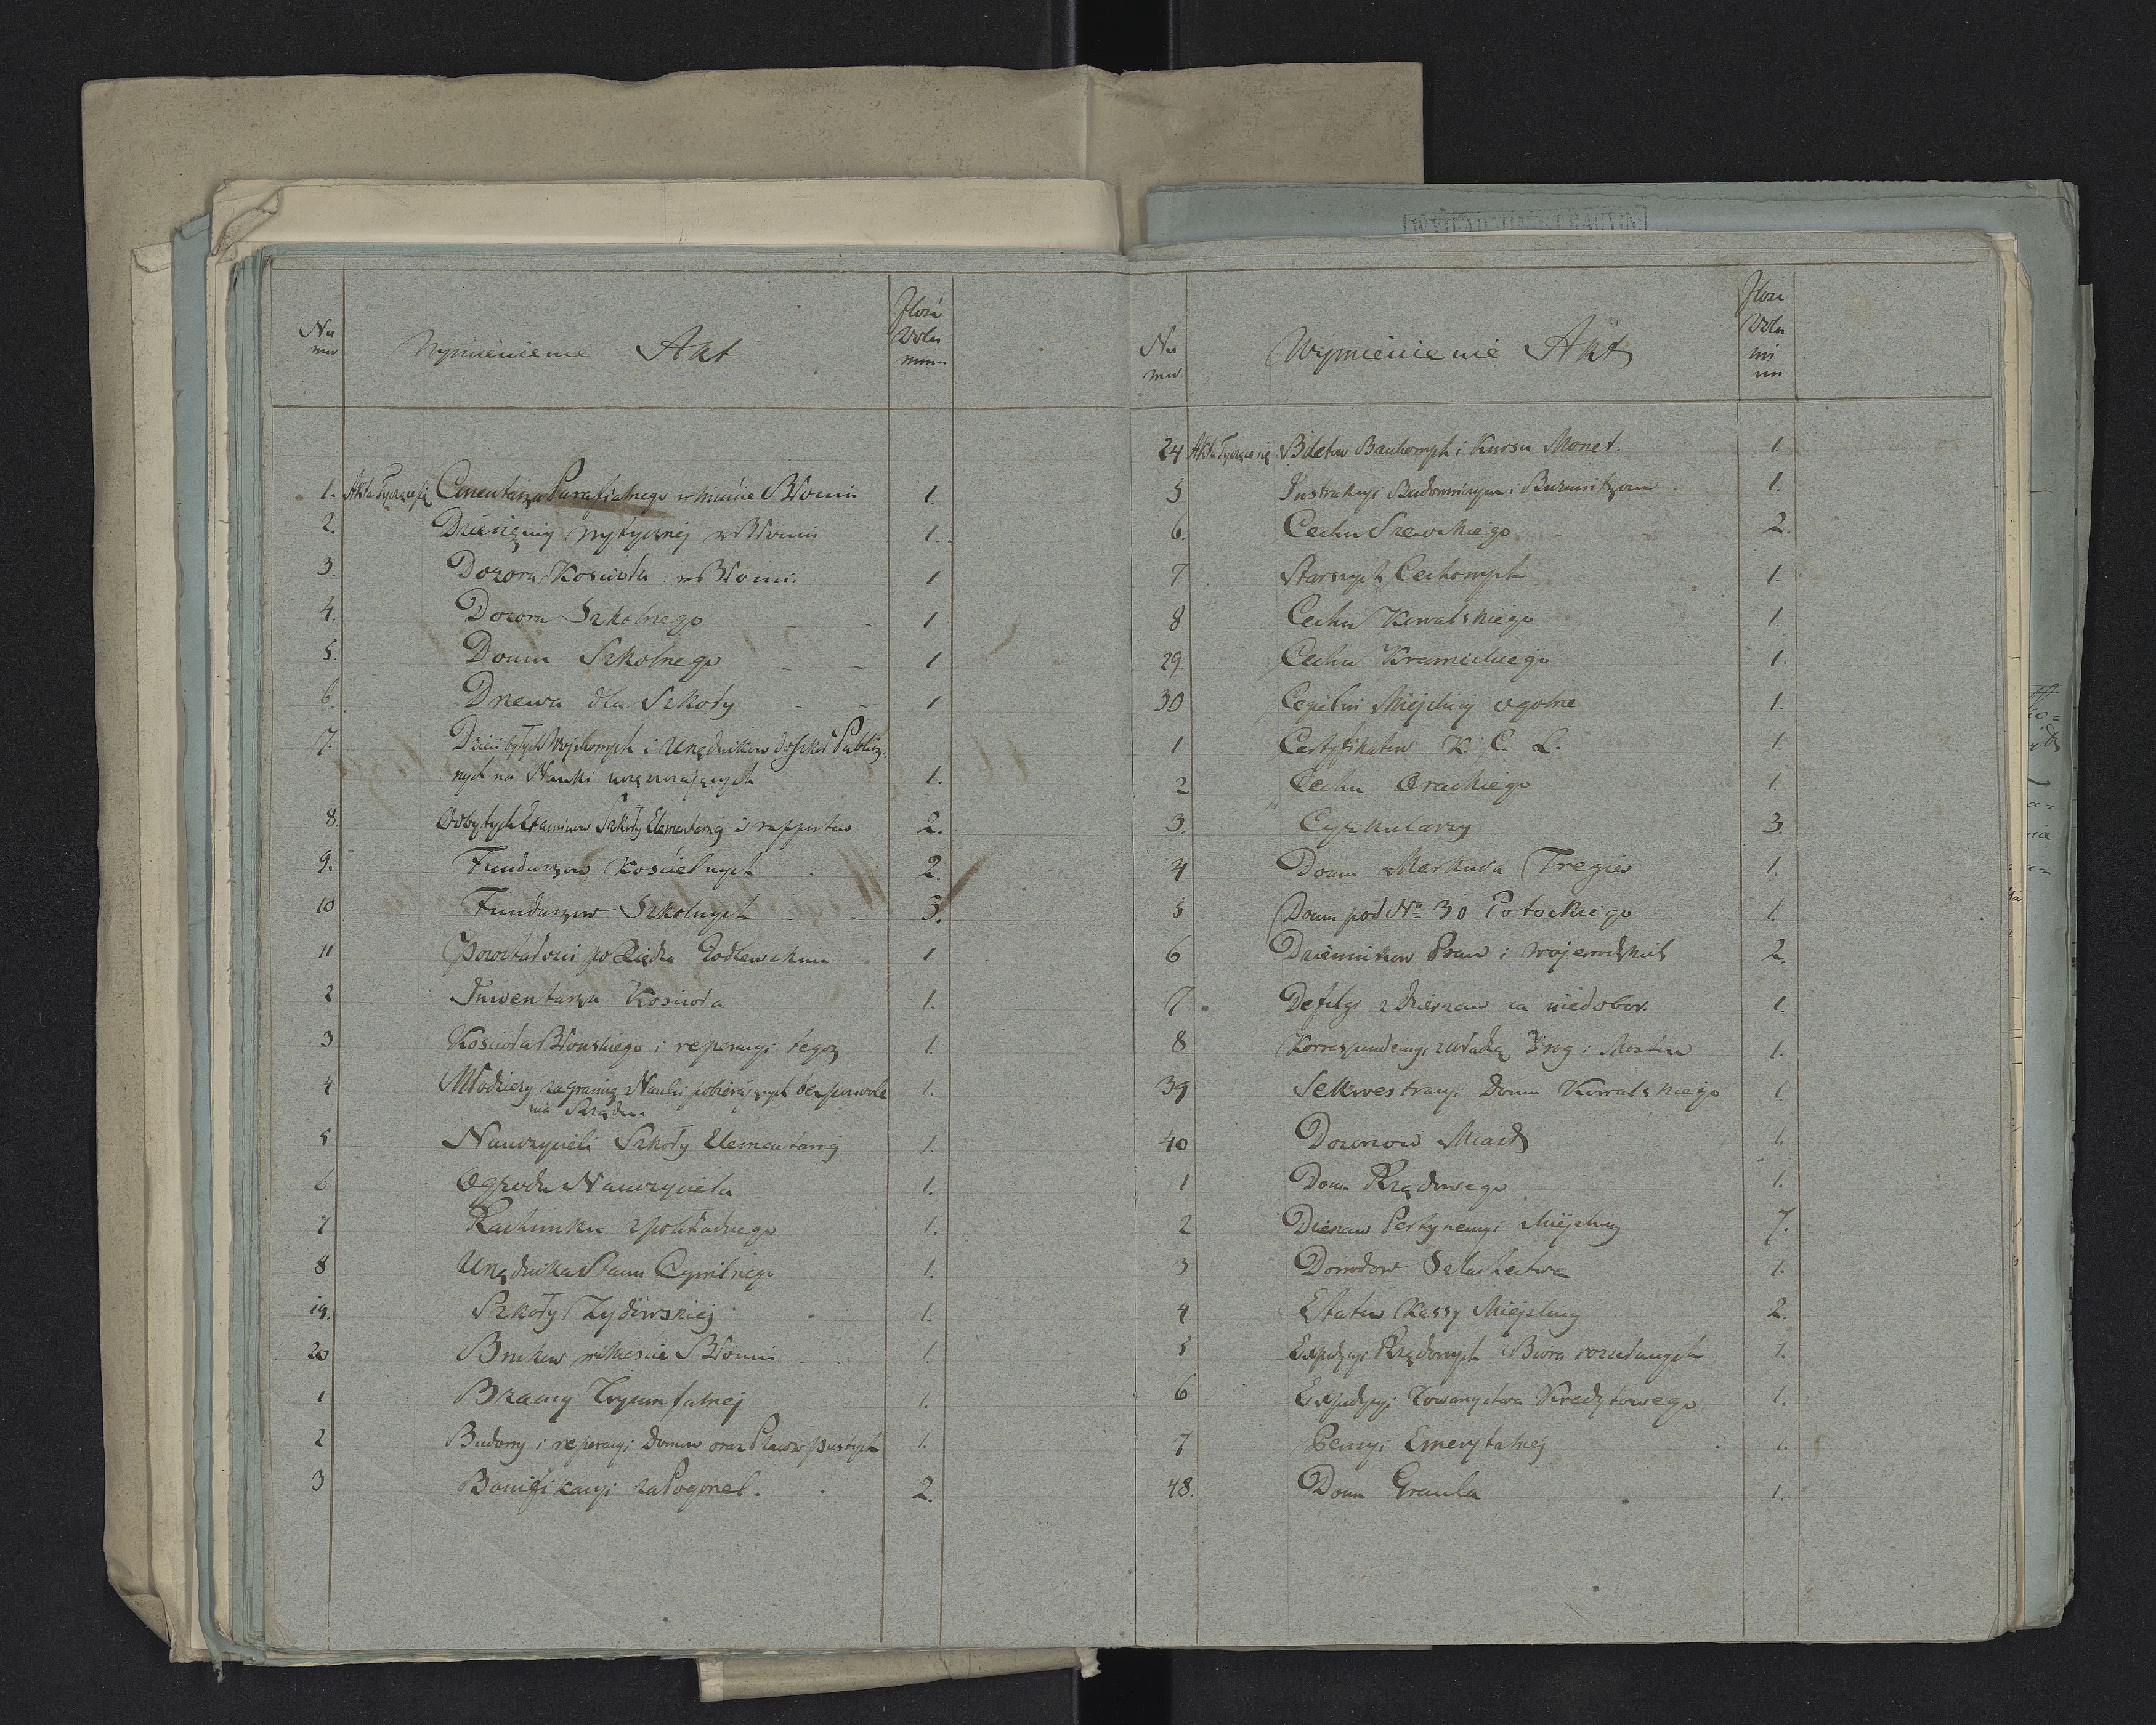 Nu
mer
Wymienienie Akt
Ilość
Volu
minu
1. Akta Tyczące się Cmentarza Parafialnego w Mieście Błoniu 1.
2. Dziesięciny wytycznej w Błoniu 1.
3. Dozoru Kościoła w Błoniu 1
4. Dozoru Szkolnego 1
5. Domu Szkolnego 1
6. Drzewa dla Szkoły 1
7. Dzieci byłych Woyskowych i Urzędników do Szkół Publicz-
nych na Nauki uczęszczających 1.
8. Odbytych Examinów Szkoły Elementarnej i rapportów 2.
9. Funduszow Kościelnych 2.
10 Funduszow Szkolnych 3.
11 Pozostałości po Xiędzu Godlewskim 1
2 Inwentarza Kościoła 1.
3 Kościoła Błońskiego i reperacyi tegoż 1.
4 Młodzieży zagranicą Nauki pobierających bez pozwole
nia Rządu. 1.
5 Nauczycieli Szkoły Elementarnej 1.
6 Ogrodu Nauczyciela 1.
7 Rachunku z pokładnego 1.
8 Urzędnika Stanu Cywilnego 1.
19. Szkoły Żydowskiej 1.
20 Bruków w Mieście Błoniu 1.
1 Bramy Tryumfalnej 1.
2 Budowy i reperacyi Domów oraz Placow pustych 1.
3 Bonifikacyi za Pogorzel. 2.
Nu
mer
Wymienienie Akt
Ilość
Volu
mi
nu
24 Akta Tyczące się Biletow Bankowych i Kursu Monet. 1
5 Instrukcyi Budowniczym i Burmistrzom 1.
6. Cechu Szewckiego 2.
7 Starszych Cechowych 1.
8 Cechu Kowalskiego 1.
29. Cechu Krawieckiego 1.
30 Cegielni Miejskiej ogolne 1.
1 Certyfikatow K. C. L. 1.
2 Cechu 1.
3. Cyrkularzy 3.
4 Domu Markusa Tregier 1.
5 Domu pod No 30 Potockiego 1.
6 Dziennikow Praw i wojewodzkich 2.
7 z Dzierzaw za niedobor. 1.
8 Korrespondencyi z władzą Drog i Mostow 1.
39 Sekwestracyi Domu Kowalskiego 1.
40 Dozorcow Miast 1.
1 Domu Rządowego 1.
2 Dzierzaw Pertynencyi Miejskiej 7.
3 Dowodow Szlachectwa 1.
4 Etatow Kassy Miejskiej 2.
5 Expedycyi Rządowych z Biora rozsłanych 1.
6 Expedycyi Towarzystwa Kredytowego 1.
7 Pensyi Emerytalnej 1.
48. Domu Graula 1.